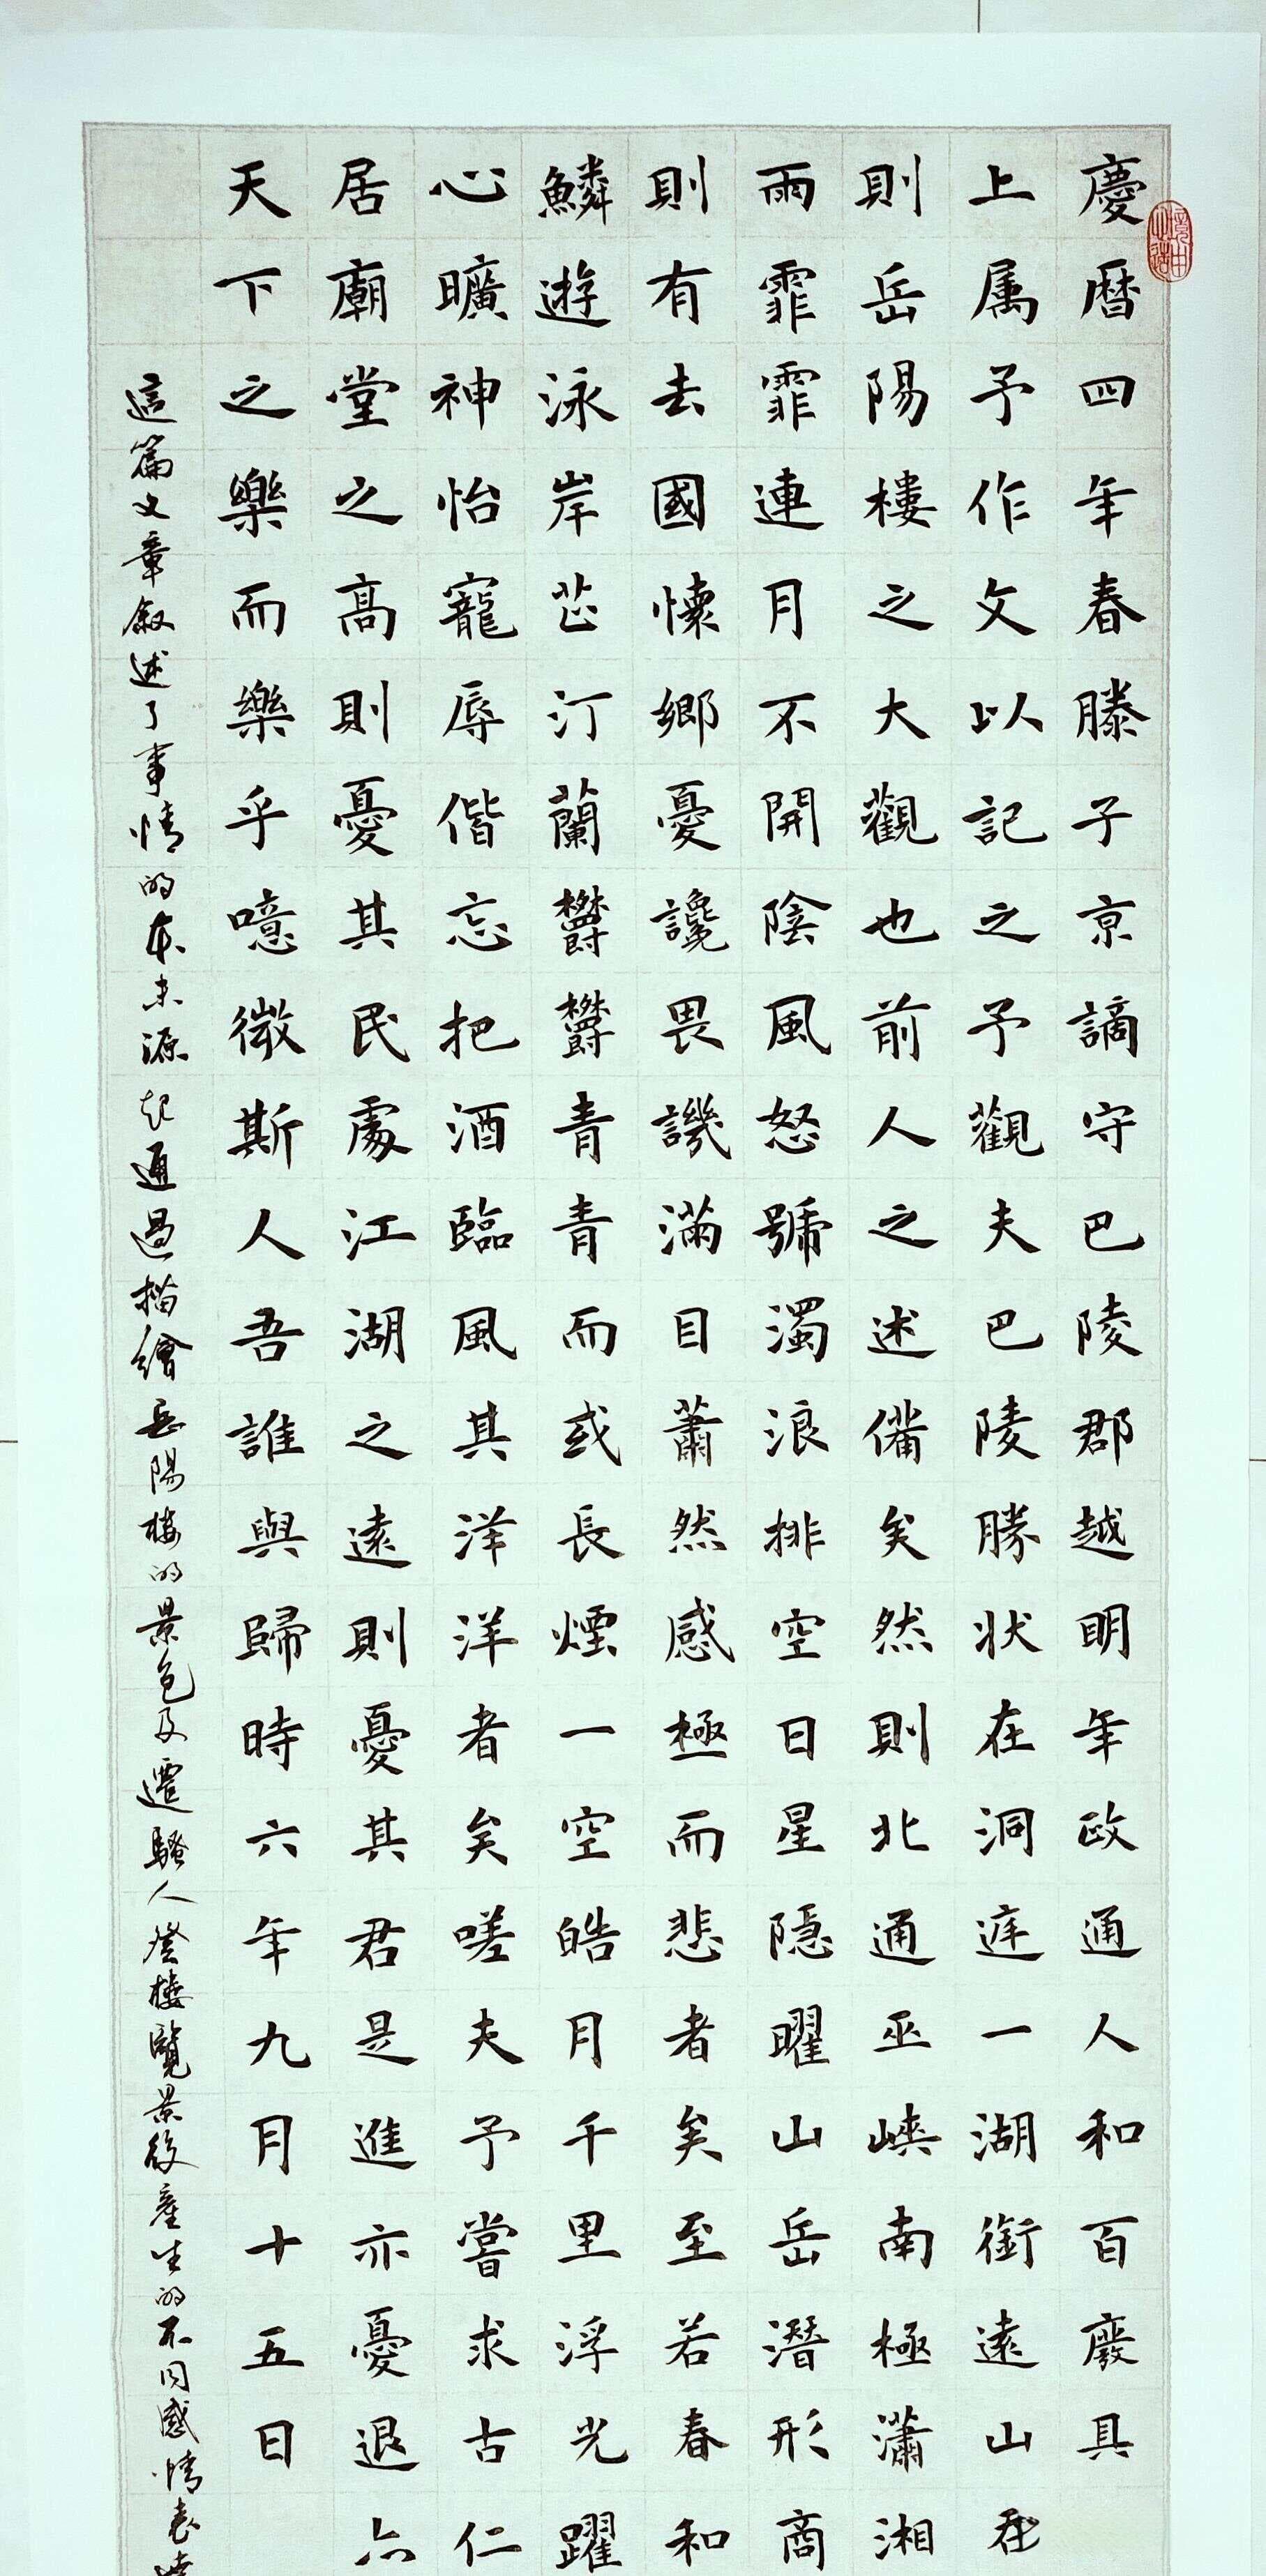 慶曆四年春滕子京謫守巴陵郡越明年政通人和百廢具
上属予作文以記之予觀夫巴陵勝状在洞庭一湖銜遠山吞
則岳陽樓之大觀也前人之述備矣然則北通巫峽南極瀟湘
雨霏霏連月不開陰風怒號濁浪排空日星隱曜山岳潛形商
則有去國懷鄉憂讒畏譏滿目蕭然感極而悲者矣至若春和
鱗遊泳岸芷汀蘭欝欝青青而或長煙一空皓月千里浮光躍
心曠神怡寵辱偕忘把酒臨風其洋洋者矣嗟夫予嘗求古仁
居廟堂之高則憂其民處江湖之遠則憂其君是進亦憂退亦
天下之樂而樂乎噫微斯人吾誰與歸時六年九月十五日
這篇文章叙述了事情的本末源起通過描繪岳陽樓的景色及遷騷人登樓覽景後産生的不同感情表達